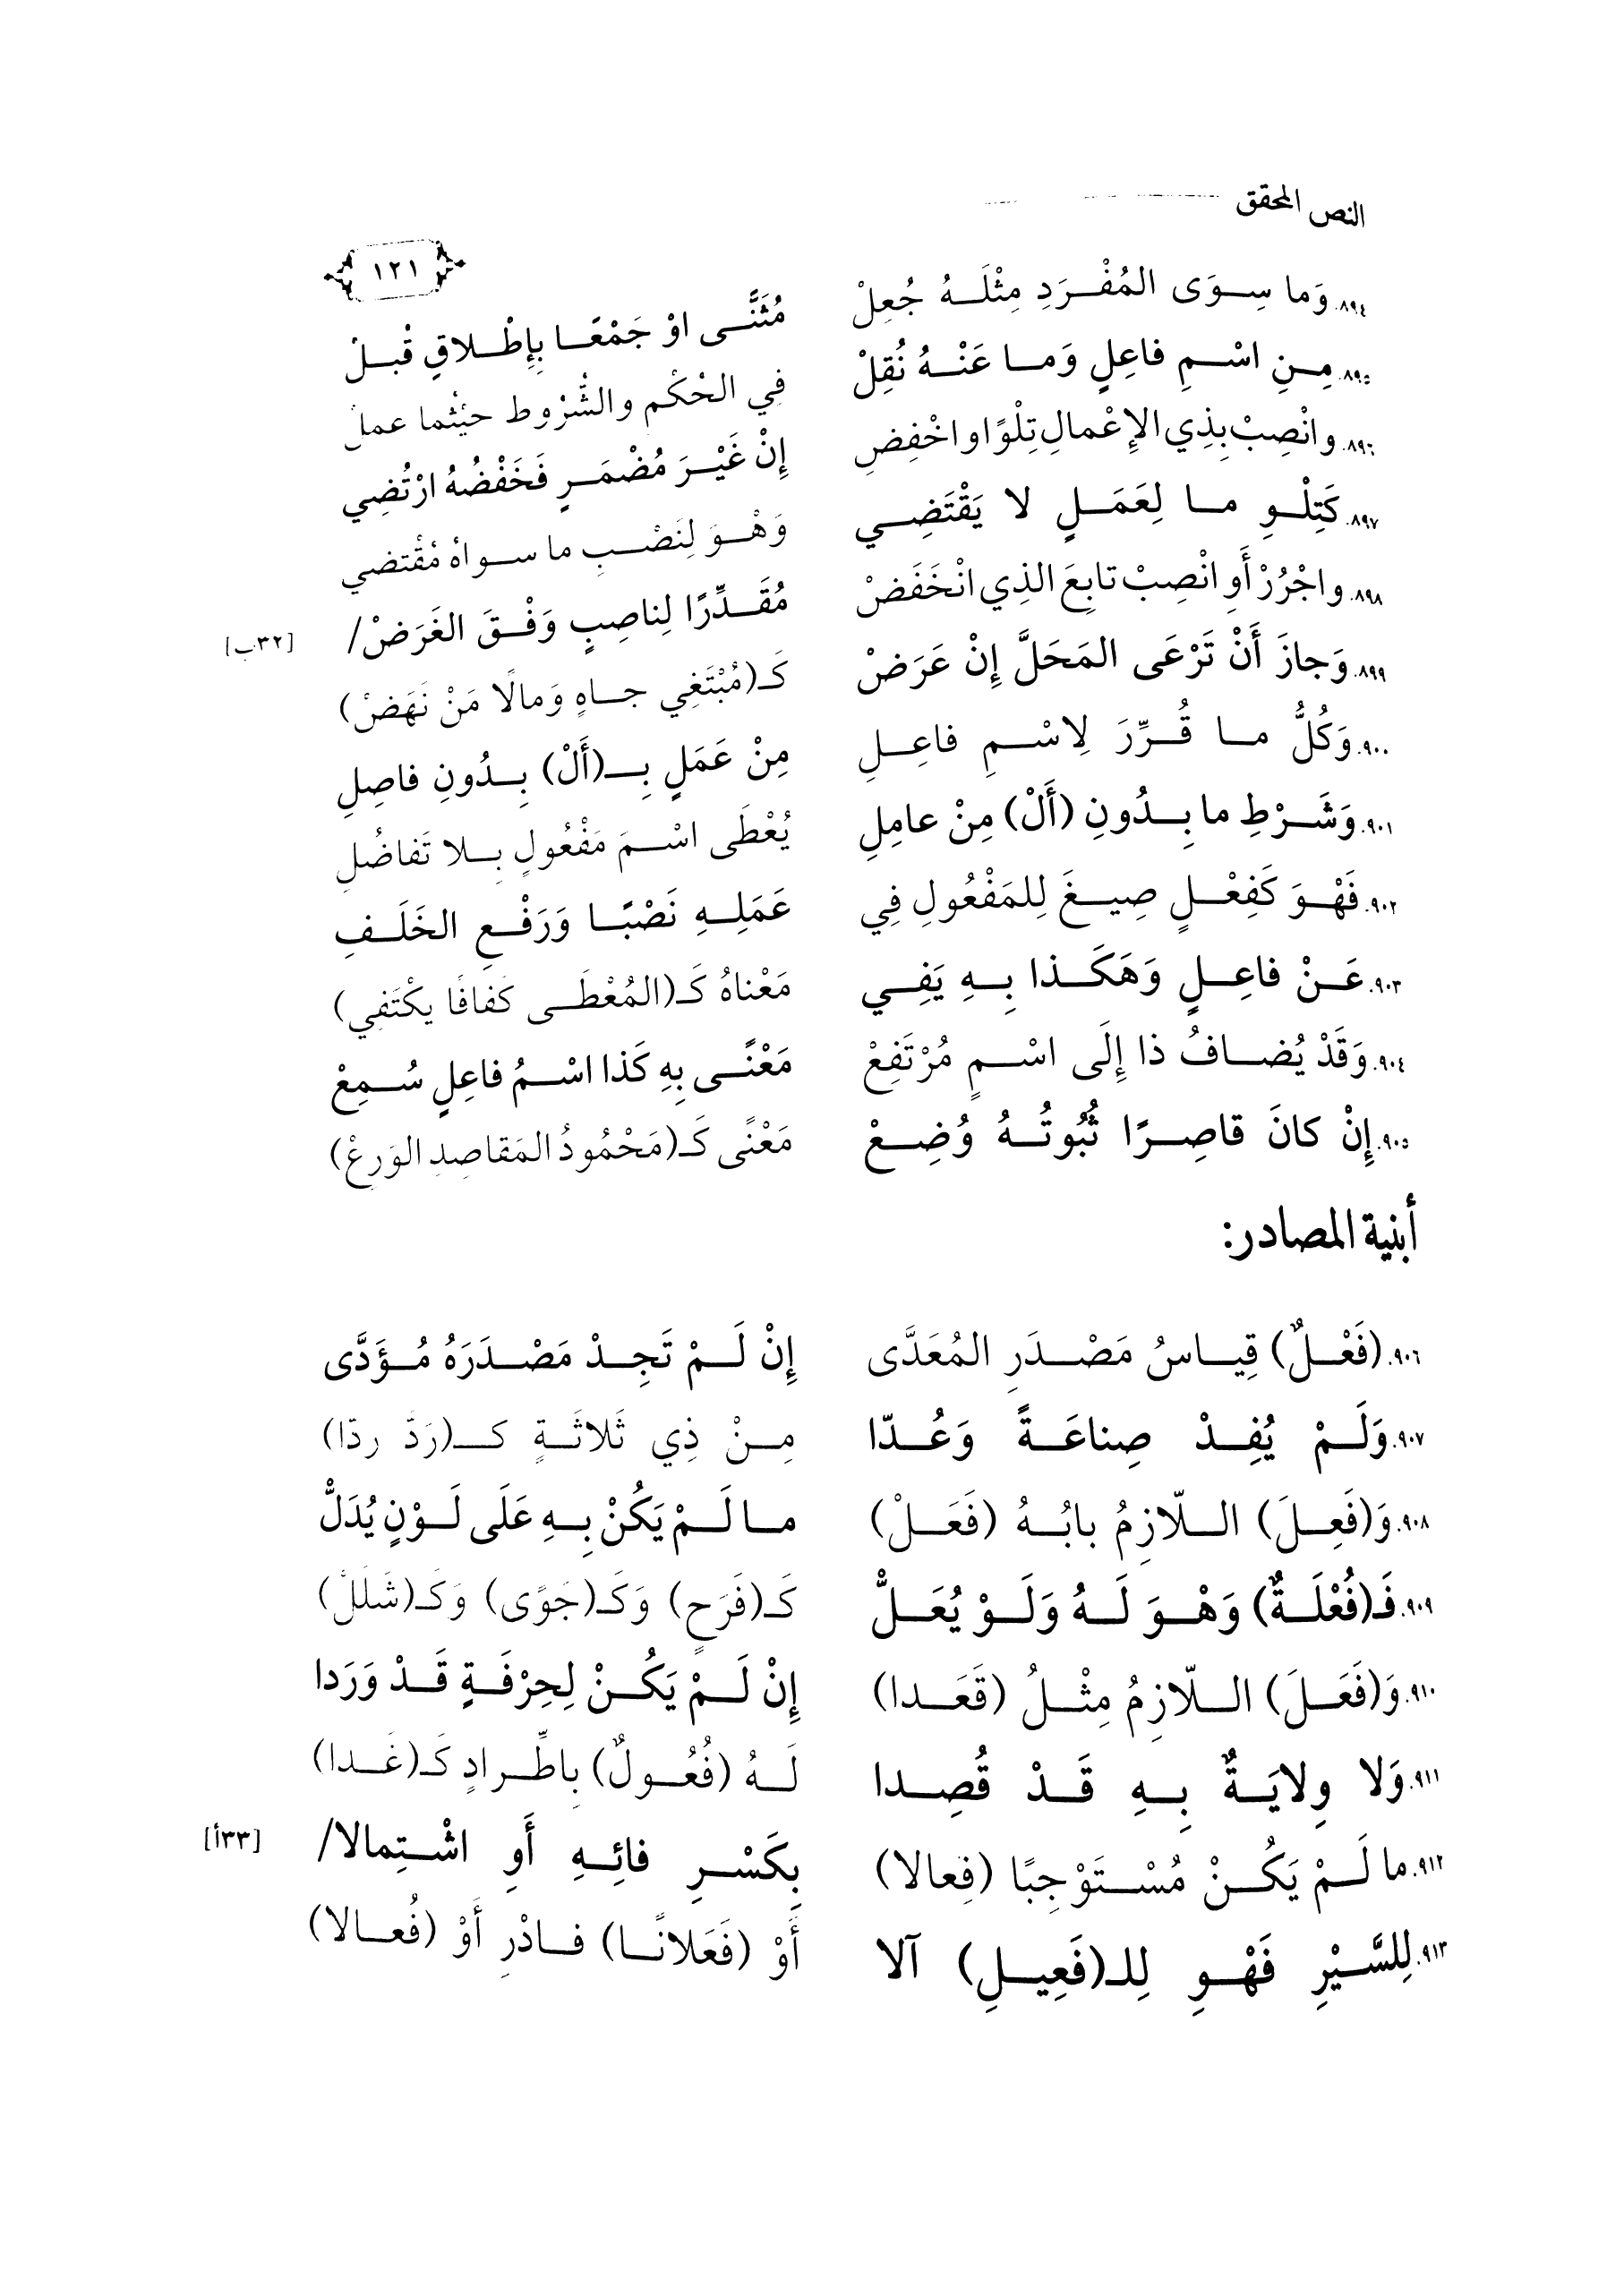 النص المحقق
١٢١
٨٩٤. وَما سِـوَى المُفْـرَدِ مِثْلَـهُ جُعِلْ مُثَنًّـى اوْ جَمْعًـا بِإِطْـلاقٍ قُبـلْ
٨٩٥. مِـنِ اسْـمِ فاعِلٍ وَمـا عَنْـهُ نُقِلْ فِي الحُكْمِ والشُّرُوط حيْثُما عمل
٨٩٦. وانْصِبْ بِذِي الإِعْمالِ تِلْوًا واخْفِضِ إِنْ غَيْـرَ مُضْمَـرٍ فَخَفْضُهُ ارْتُضِي
٨٩٧. كَتِلْـوِ مـا لِعَمَـلٍ لا يَقْتَضِـي وَهْـوَ لِنَصْـبِ ما سـواهُ مُقْتضي
٨٩٨. واجْرُرْ أَوِ انْصِبْ تابِعَ الذِي انْخَفَضْ مُقَـدِّرًا لِناصِبٍ وَفْـقَ الغَرَضْ/ [٣٢ب]
٨٩٩. وَجازَ أَنْ تَرْعَى المَحَلَّ إِنْ عَرَضْ كَـ(مُبْتَغِي جـاهٍ وَمالًا مَنْ نَهَضْ)
٩٠٠. وَكُلُّ مـا قُـرِّرَ لِاسْـمِ فاعِـلِ مِنْ عَمَلٍ بِـ(أَلْ) بِـدُونِ فاصِلِ
٩٠١. وَشَـرْطِ ما بِـدُونِ (أَلْ) مِنْ عامِلِ يُعْطَى اسْـمَ مَفْعُولٍ بِـلا تَفاضُلِ
٩٠٢. فَهْـوَ كَفِعْـلٍ صِيـغَ لِلمَفْعُولِ فِي عَمَلِـهِ نَصْبًـا وَرَفْـعِ الخَلَـفِ
٩٠٣. عَـنْ فاعِـلٍ وَهَكَـذا بِـهِ يَفِـي مَعْناهُ كَـ(المُعْطَـى كَفافًا يكْتَفِي)
٩٠٤. وَقَدْ يُضـافُ ذا إِلَى اسْـمٍ مُرْتَفِعْ مَعْنًـى بِهِ كَذا اسْـمُ فاعِلٍ سُـمِعْ
٩٠٥. إِنْ كانَ قاصِـرًا ثُبُوتُـهُ وُضِـعْ مَعْنًى كَـ(مَحْمُودُ المَقاصِدِ الوَرِعْ)
أبنية المصادر:
٩٠٦. (فَعْـلٌ) قِيـاسُ مَصْـدَرِ المُعَدَّى إِنْ لَـمْ تَجِـدْ مَصْـدَرَهُ مُـؤَدَّى
٩٠٧. وَلَـمْ يُفِـدْ صِناعَـةً وَعُـدّا مِـنْ ذِي ثَلاثَـةٍ كـ(رَدَّ ردّا)
٩٠٨. وَ(فَعِـلَ) الـلّازِمُ بابُـهُ (فَعَـلْ) مـا لَـمْ يَكُنْ بِـهِ عَلَى لَـوْنٍ يُدَلُّ
٩٠٩. فَـ(فُعْلَـةٌ) وَهْـوَ لَـهُ وَلَـوْ يُعَـلُّ كَـ(فَرَحٍ) وَكَـ(جَوًى) وَكَـ(شَلَلْ)
٩١٠. وَ(فَعَـلَ) الـلّازِمُ مِثْـلُ (قَعَـدا) إِنْ لَـمْ يَكُـنْ لِحِرْفَـةٍ قَـدْ وَرَدا
٩١١. وَلا وِلايَـةٌ بِـهِ قَـدْ قُصِـدا لَـهُ (فُعُـولٌ) بِاطِّـرادٍ كَـ(غَـدا)
٩١٢. ما لَـمْ يَكُـنْ مُسْـتَوْجِبًا (فِعالا) بِكَسْـرِ فائِـهِ أَوِ اشْـتِمالا/ [٣٣أ]
٩١٣. لِلسَّـيْرِ فَهْـوِ لِلـ(فَعِيـلِ) آلا أَوْ (فَعَلانًـا) فـادْرِ أَوْ (فُعـالا)